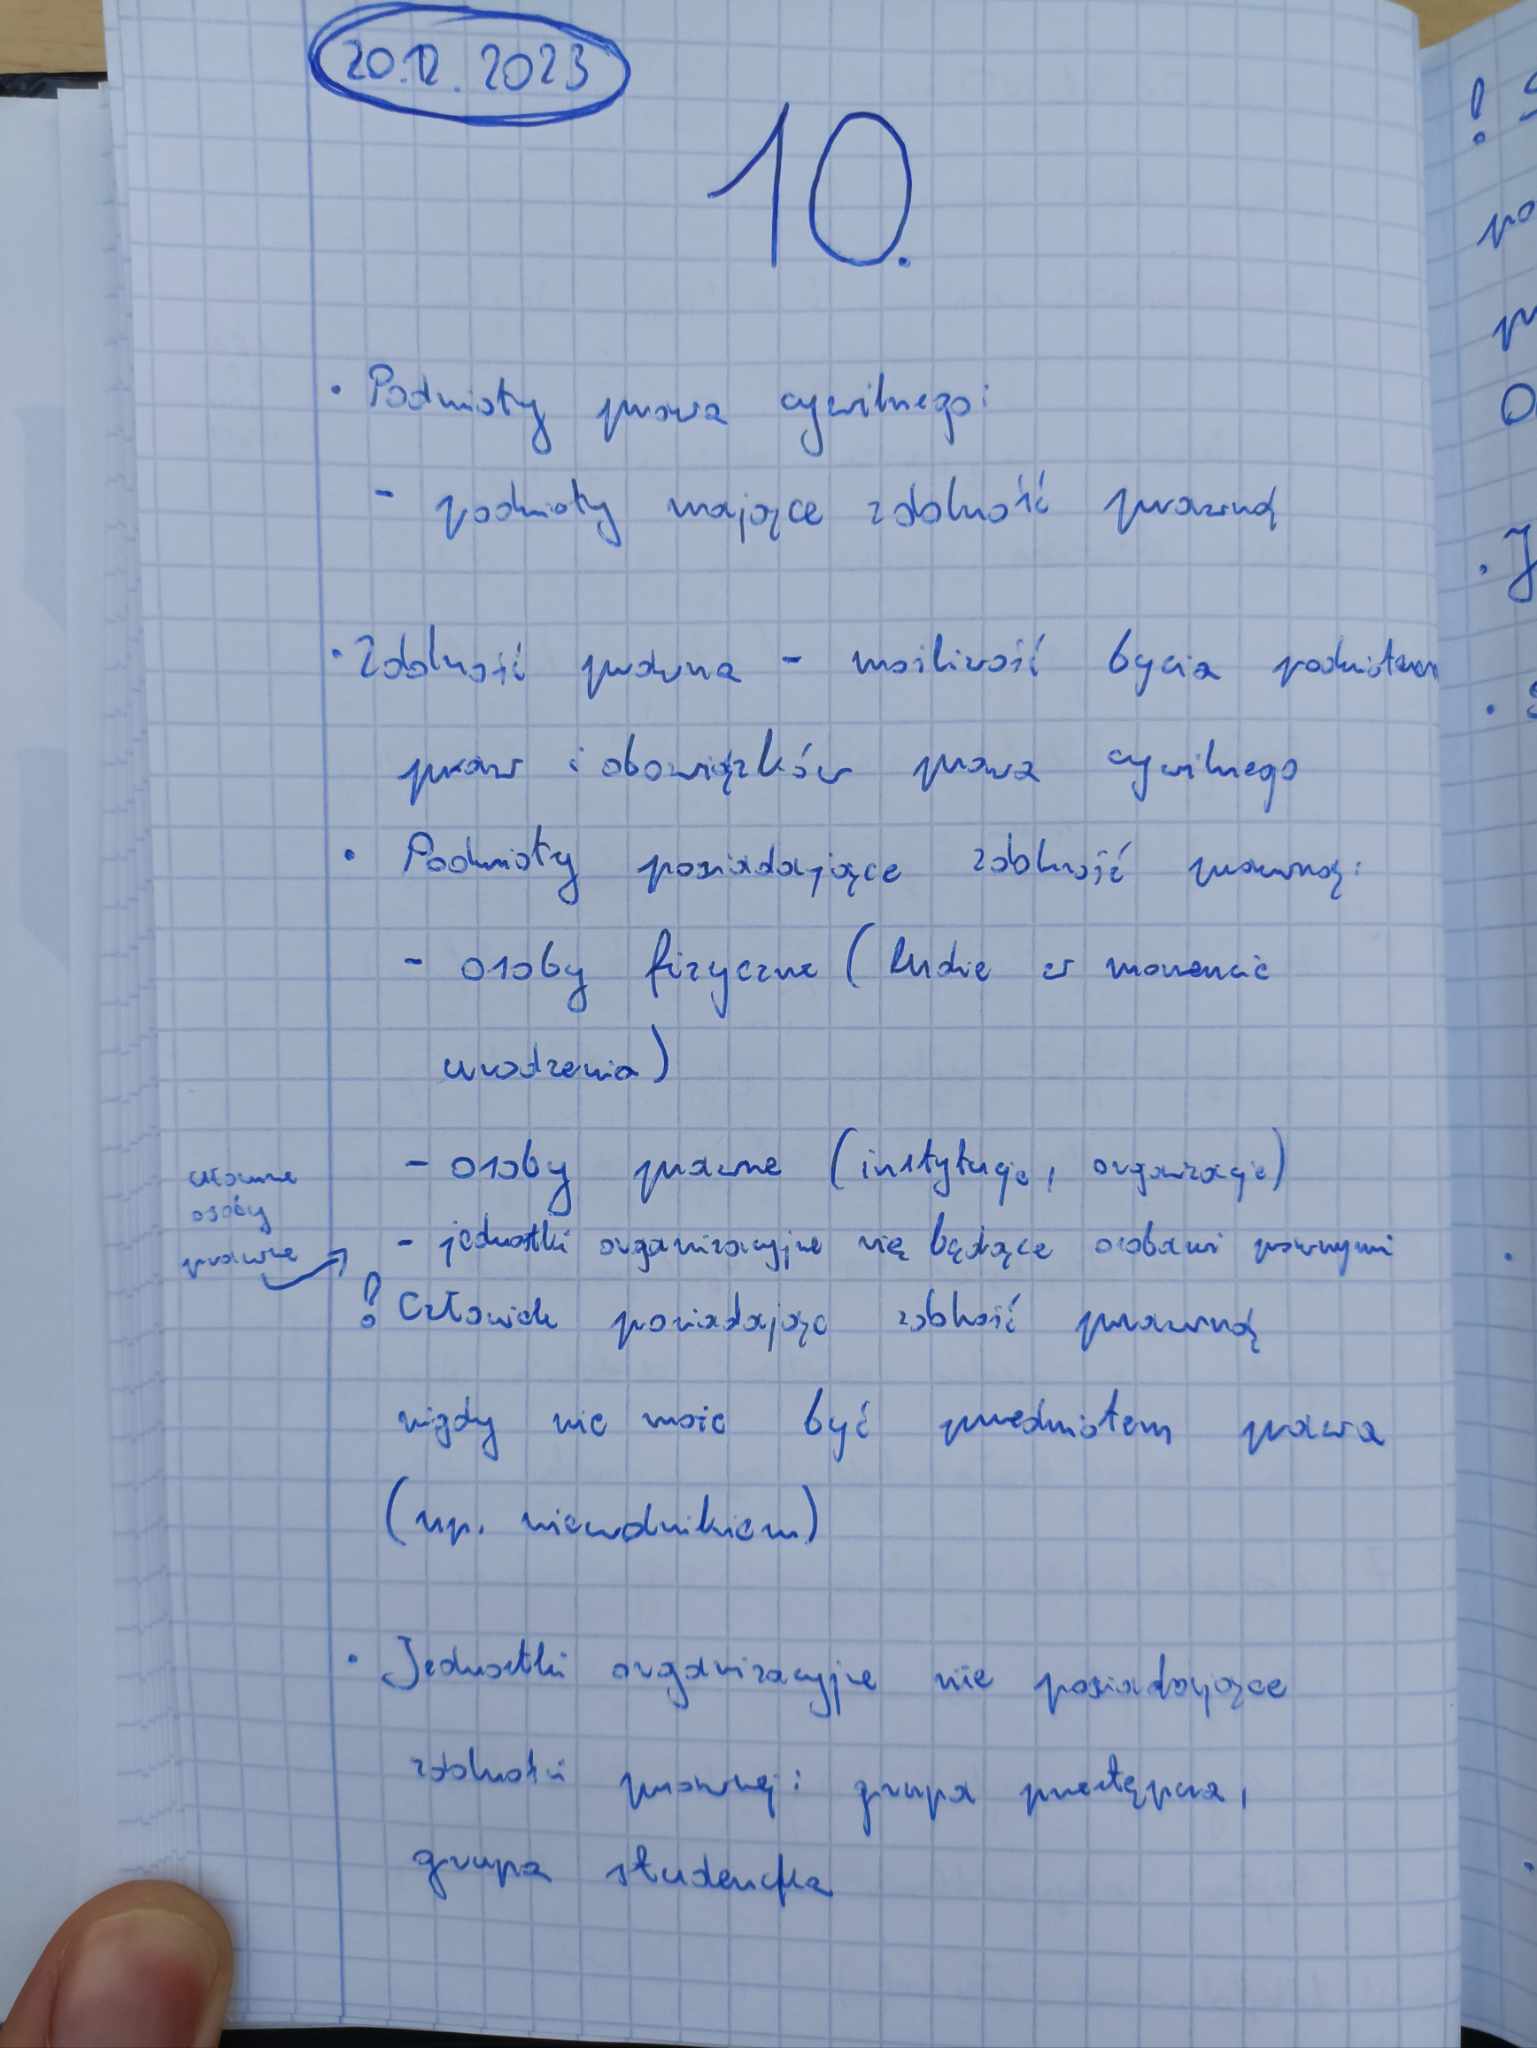 20.12.2023
10.
• Podmioty prawa cywilnego:
- podmioty mające zdolność prawną
• Zdolność prawna - możliwość bycia podmiotem
praw i obowiązków prawa cywilnego
• Podmioty posiadające zdolność prawną:
- osoby fizyczne (ludzie w momencie
urodzenia)
- osoby prawne (instytucje, organizacje)
ułomne
osoby
prawne
- jednostki organizacyjne nie będące osobami prawnymi
! Człowiek posiadając zdolność prawną
nigdy nie może być przedmiotem prawa
(np. niewolnikiem)
• Jednostki organizacyjne nie posiadające
zdolności prawnej: grupa przestępcza,
grupa studencka